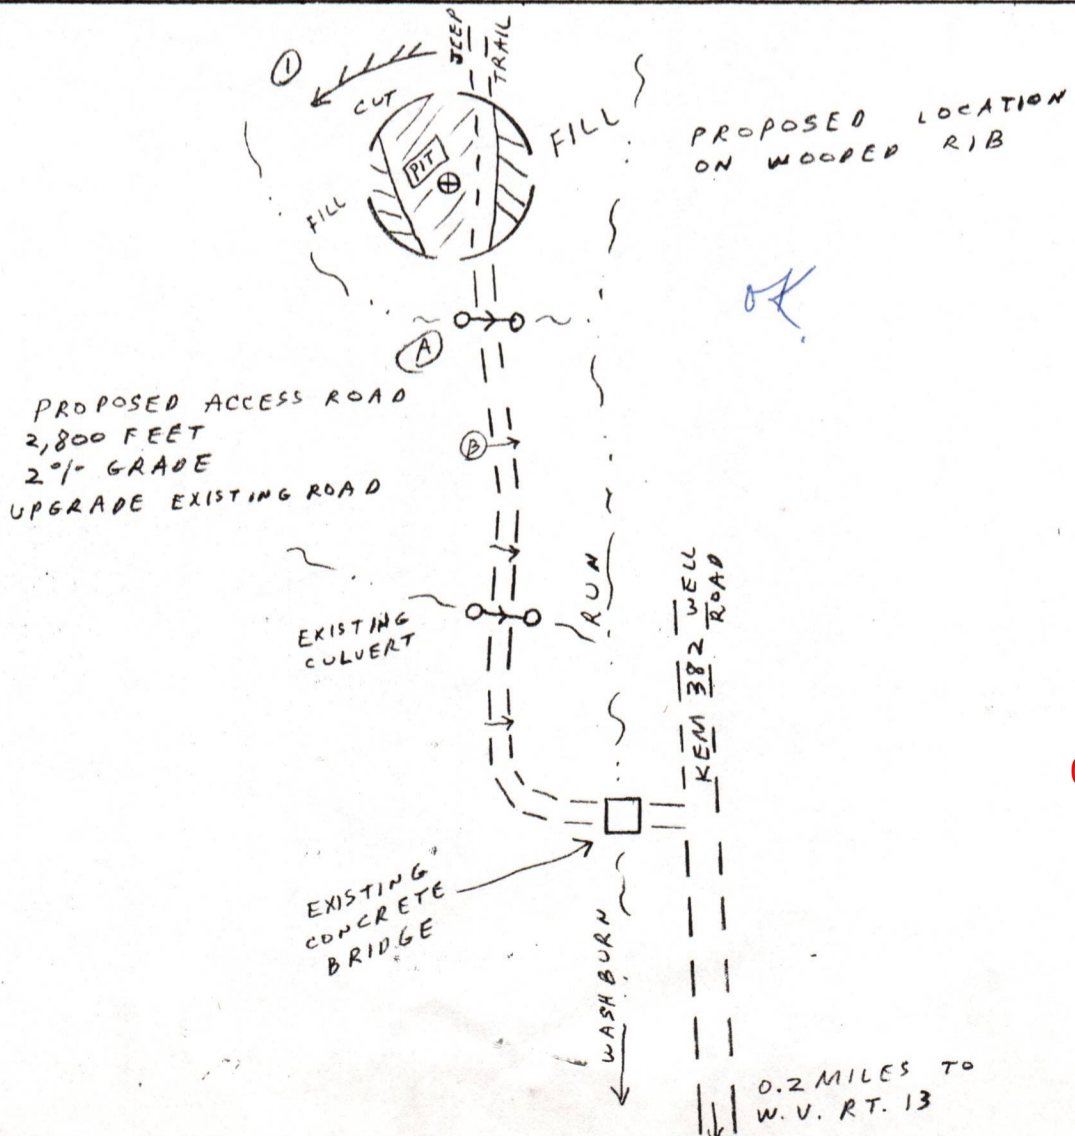 JEEP
TRAIL
1
CUT
FILL
PIT
FILL
PROPOSED LOCATION
ON WOODED RIB
OK
A
PROPOSED ACCESS ROAD
2,800 FEET
2% GRADE
UPGRADE EXISTING ROAD
B
EXISTING
CULVERT
RUN
KEM 382 WELL
ROAD
EXISTING
CONCRETE
BRIDGE
WASHBURN
0.2 MILES TO
W.V. RT. 13